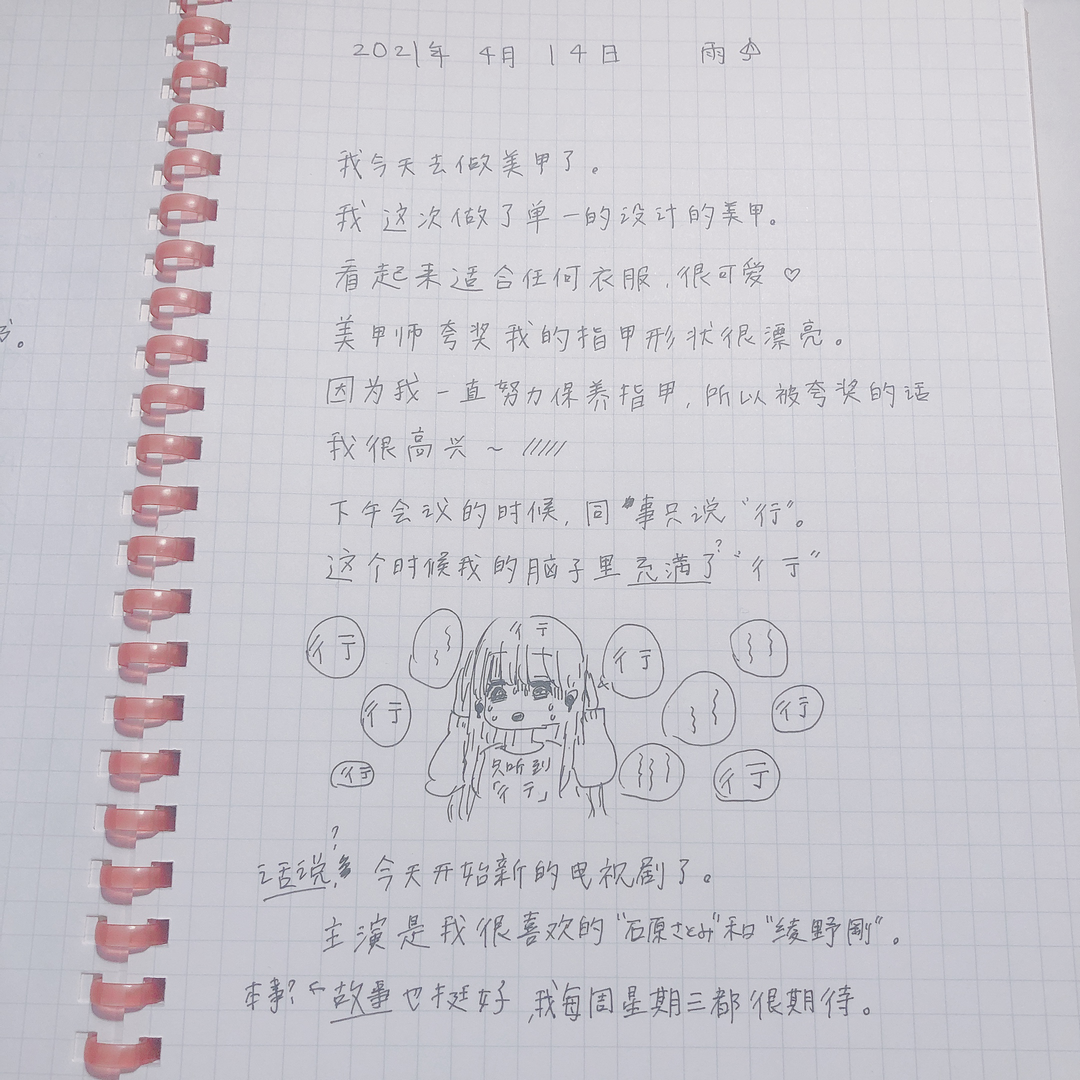 2021年 4月 14日 雨
我今天去做美甲了。
我这次做了单一的设计的美甲。
看起来适合任何衣服,很可爱♡
美甲师夸奖我的指甲形状很漂亮。
因为我一直努力保养指甲,所以被夸奖的话
我很高兴~/////
下午会议的时候,同事只说“行”。
?
这个时候我的脑子里充满了“行”
行
行
行
行
行
行
行
行
只听到
「行」
?
话说, 今天开始新的电视剧了。
主演是我很喜欢的“石原さとみ”和“綾野剛”。
本事?← 故事也挺好,我每周星期三都很期待。